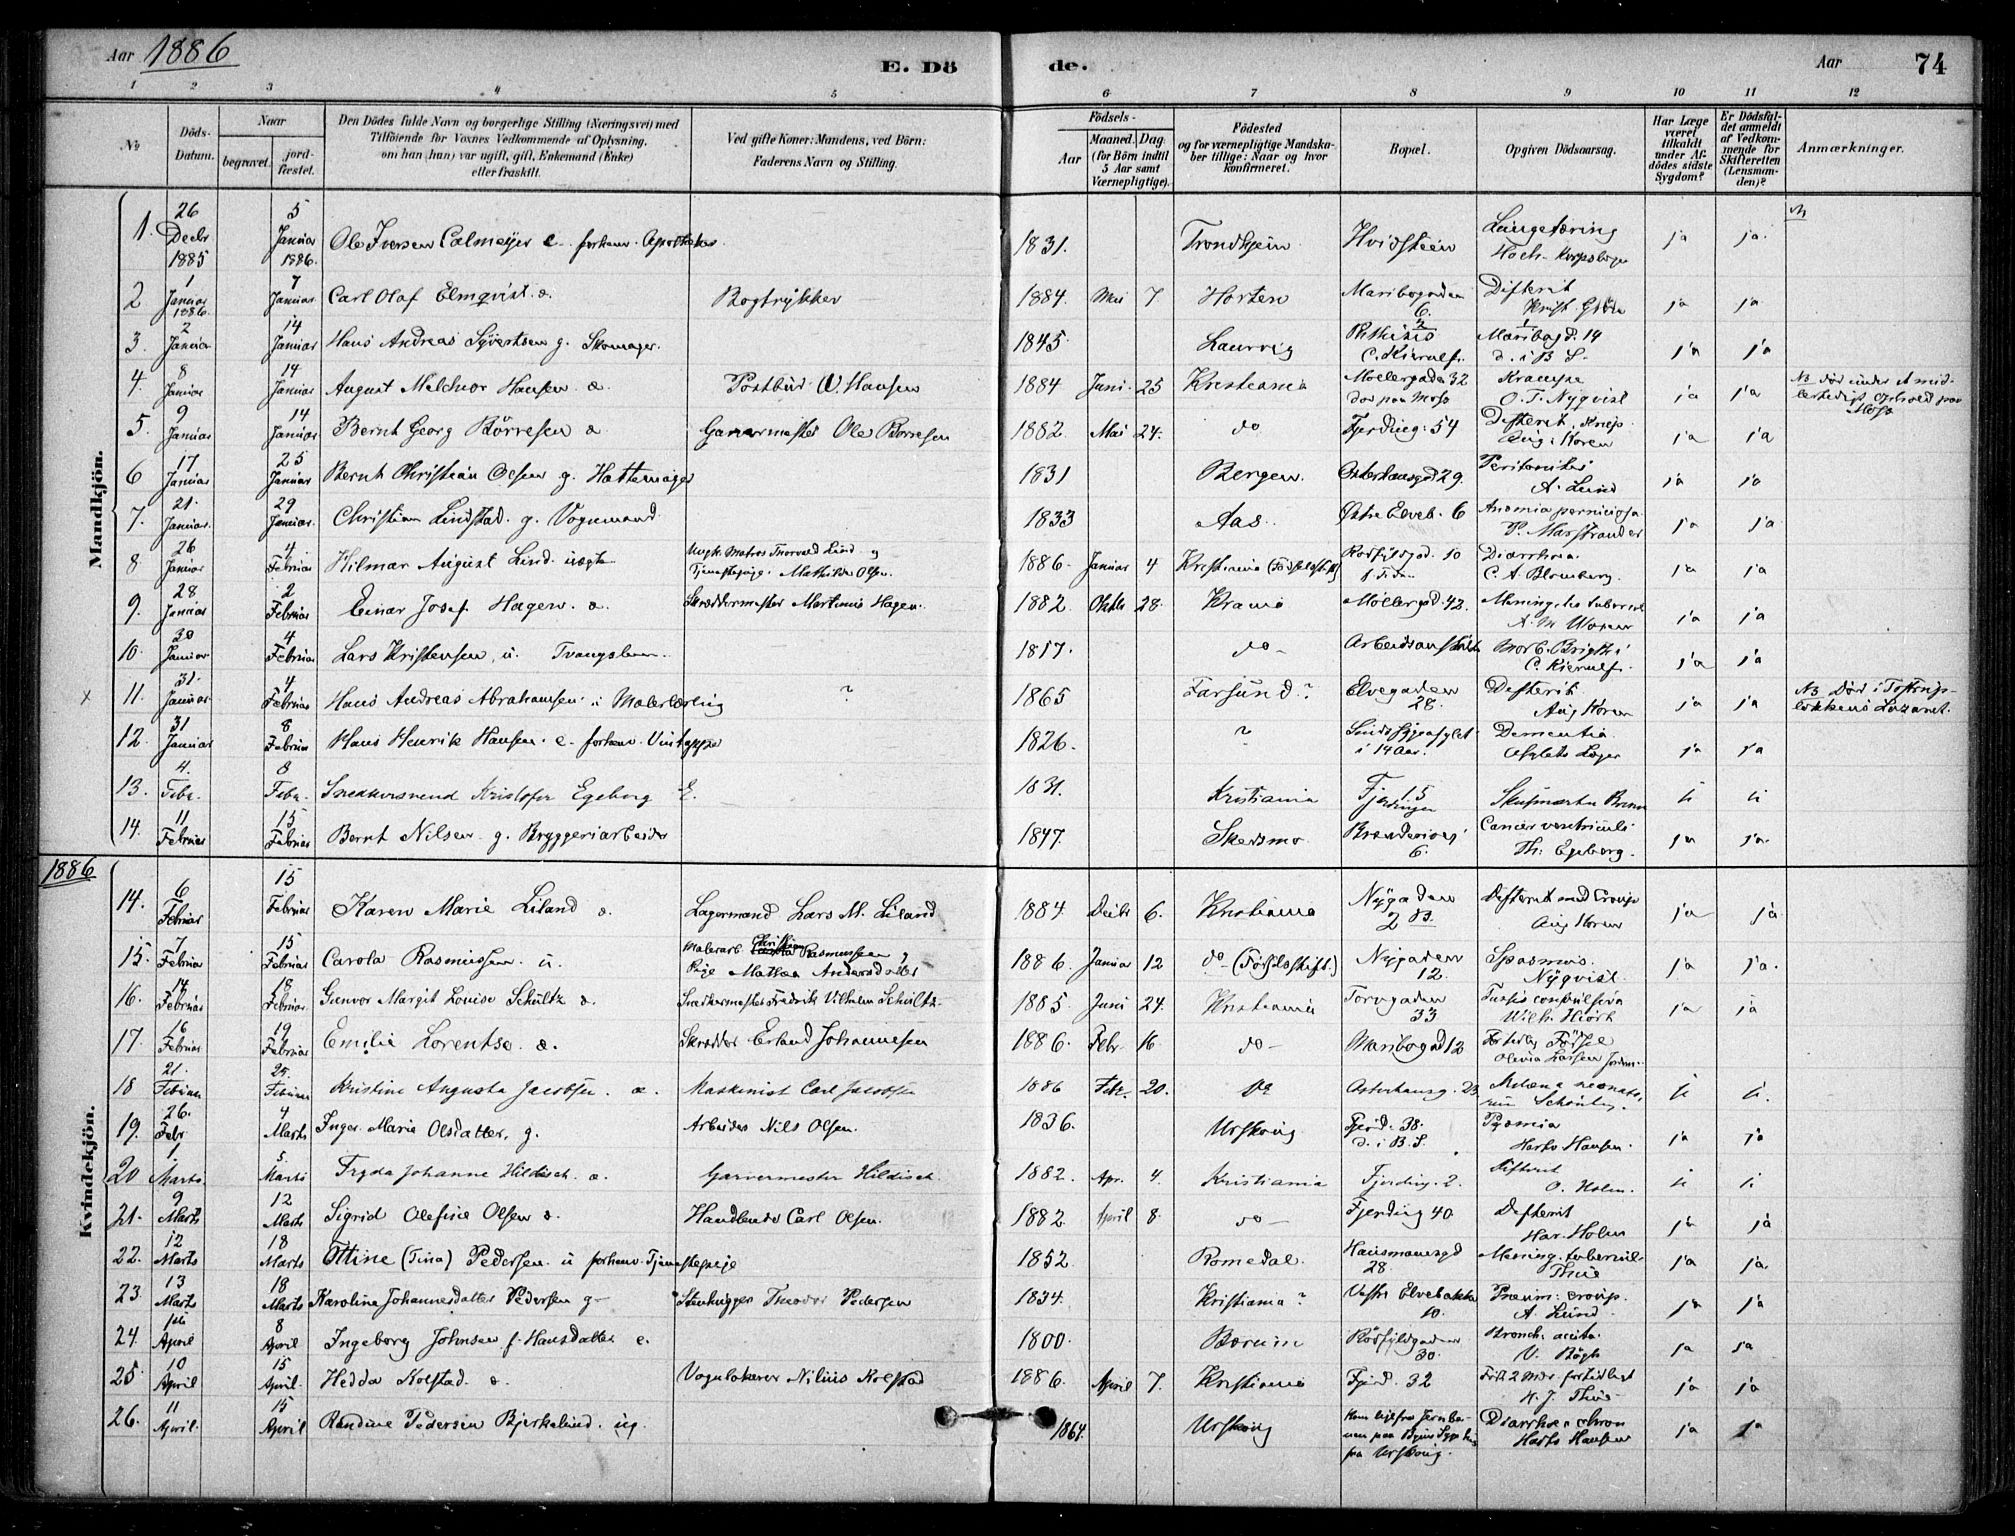 Aar 1886
E. Dö de.
Aar 74
1 2 3 4 5 6 7 8 9 10 11 12
No
Döds-Datum.
Naar begravet. jordfæstet.
Den Dödes fulde Navn og borgerlige Stilling (Næringsvei) med Tilföiende for Voxnes Vedkommende af Oplysning, om han (hun) var ugift, gift, Enkemand (Enke) eller fraskilt.
Ved gifte Koner: Mandens, ved Börn: Faderens Navn og Stilling.
Födsels- Aar Maaned. Dag. (for Börn indtil 5 Aar samt Værnepligtige).
Födested og for værnepligtige Mandskaber tillige: Naar og hvor konfirmeret.
Bopæl.
Opgiven Dödsaarsag.
Har Læge været tilkaldt under Afdödes sidste Sygdom?
Er Dödsfaldet anmeldt af Vedkommende for Skifteretten (Lensmanden)?
Anmærkninger.
Mandkjön.
1. 26 Decbr 1885 5 Januar 1886. Ole Iversen Calmeyer e. forhenv. Apotheker 1831. Trondhjem Hvidsteen Lungetæring ja ja.
2 1 Januar 1886. 7 Januar Carl Olaf Elmqvist. æ. Bogtrykker 1884. Mai 7 Horten Maribogaden 6. Difterit ja ja
3. 2 Januar 14 Januar Hans Andreas Syvertsen g. Skomager. 1845. Laurvig C. Kierulf. Maribogd. 14 d. i B. S. ja ja
4. 8 Januar 14 Januar August Melchior Hansen æ. Postbud O. Hansen 1884 Juni 25 Kristiania Møllergaden 32 død paa Moss Krampe O. T. Nyqvist ja ja NB død under et midlertidigt Ophold paa Moss
5. 9 Januar 14 Januar Bernt Georg Börresen æ Garvermester Ole Börresen 1882. Mai 24. do Fjerding. 54 Difterit, Krup. Aug. Koren ja ja
6 17 Januar 25 Januar Bernt Christian Olsen g. Hattemager 1831 Bergen. Osterhausgad 29. Peritonitis A. Lund ja ja
7. 21. Januar. 29 Januar. Christian Lindstad. g. Vognmand 1833 Aas. Østre Elveb. 6 Anæmia perniciosa P. Marstrander ja ja
8 26 Januar 4 Februar Hilmar August Lind. uægte Ungk. Matros Thorvald Lind og Tjenestepige Mathilde Olsen. 1886. Januar 4 Kristiania (Födselsstift.) Rødfyldgad. 10 Diarrhoea. C. A. Blomberg. ja ja
9. 28 Januar 2 Februar Einar Josef Hagen. æ. Skræddermester Martinus Hagen. 1882. Oktbr 28. Krania Møllergad. 42. Mening. tubercul. ja ja
10. 30 Januar 4 Februar Lars Kristensen, u. Tvangslem. 1817. do Arbeidsanstalten Morb. Brigthii C. Kierulf. ja ja
11. 31. Januar 4 Februar Hans Andreas Abrahamsen. u Malerlærling ? 1865 Farsund? Elvegaden 28. Difterit. Aug Koren ja ja NB Död i Toftrupløkkens Lazaret.
12. 31 Januar 8 Februar Hans Henrik Hansen. e. forhenv. Vintapper 1826. ? Sindssygeasylet i 14 Aar. Dementia Asylets Læger ja ja
13. 4. Febr. 8 Febr. Snedkersvend Kristofer Egeborg E. 1831. Kristiania Fjerdingen 15
14. 11 Februar 15 Februar Bernt Nilsen g. Bryggeriarbeider 1847. Skedsmo Brenneriveien 6. Cancer ventriculi Th: Egeberg. ja ja.
1886
Kvindekjön.
14. 6 Februar 15 Februar Karen Marie Liland æ. Lagermand Lars M. Liland 1884. Decbr 6. Kristiania Nygaden 2 B. Difterit med Croup Aug Koren ja ja
15. 7 Februar 15 Februar Carola Rasmussen u. Malerarb. Christian Rasmussen og Pige Mathea Andersdatter 1886. Januar 12 do (Fødselsstift.) Nygaden 12. Spasmus. Nyqvist. ja ja.
16. 14 Februar 18 Februar Gunvor Margit Louise Schultz æ. Snedkermester Fredrik Vilhelm Schultz. 1885. Juni 24. Kristiania Torvgaden 33 Tussis convulsiva Wilh. Hiort ja ja
17. 16 Februar 19 Februar Emilie Lorentse æ. Skrædder Erland Johannesen 1886. Febr 16 do Maribogad 12 Fortidlig Fødsel Olevia Larsen Jordem.
18 21. Februar 25. Februar Kristine Augusta Jacobsen. æ. Maskinist Carl Jacobsen 1886 Febr. 20. do Osterhausg. 23. Melæna neonatorum Schönberg.
19. 26. Febr 4 Marts Inger Marie Olsdatter, g. Arbeider Nils Olsen. 1836. Urskoug Fjerd. 38. d. i B. S. Pyæmia Harts Hansen. ja ja
20 1 Marts. 5. Marts Fryda Johanne Hildisch æ. Garvermester Hildisch. 1882. Apr. 4. Kristiania Fjerding. 2. Difterit O. Holm.
21. 9 Marts 12 Marts Sigrid Olefine Olsen æ. Handlende Carl Olsen. 1882. April 8. do Fjerding 40. Difterit Har. Holm ja ja
22. 12 Marts 18 Marts Ottine (Tina) Pedersen. u forhenv. Tjenestepige 1852. Romedal. Hausmannsgd 28. Mening. tubercul. Thue ja ja.
23. 13 Marts 18 Marts Karoline Johannesdatter Pedersen g. Stenhugger Theodor Pedersen 1834. Kristiania? Vestre Elvebakke 10. Pneum: croup. A. Lund. ja ja
24. April 8 April Ingeborg Johnsen f. Hansdatter e. 1800. Bærum Rödfyldgaden 30. Bronch: acuta. V. Bugh ja ja
25. 10 April 15 April. Hedda Kolstad. æ. Vognlakerer Nilius Kolstad 1886. April 7. Kristiania Fjerd. 32 Født 2 Mdr. fortidligt H. J. Thue ja ja
26. 11 April. 15 April Randine Pedersen Bjerkelund. ug. 1864. Urskoug Diarrhoe chron Harts Hansen ja ja